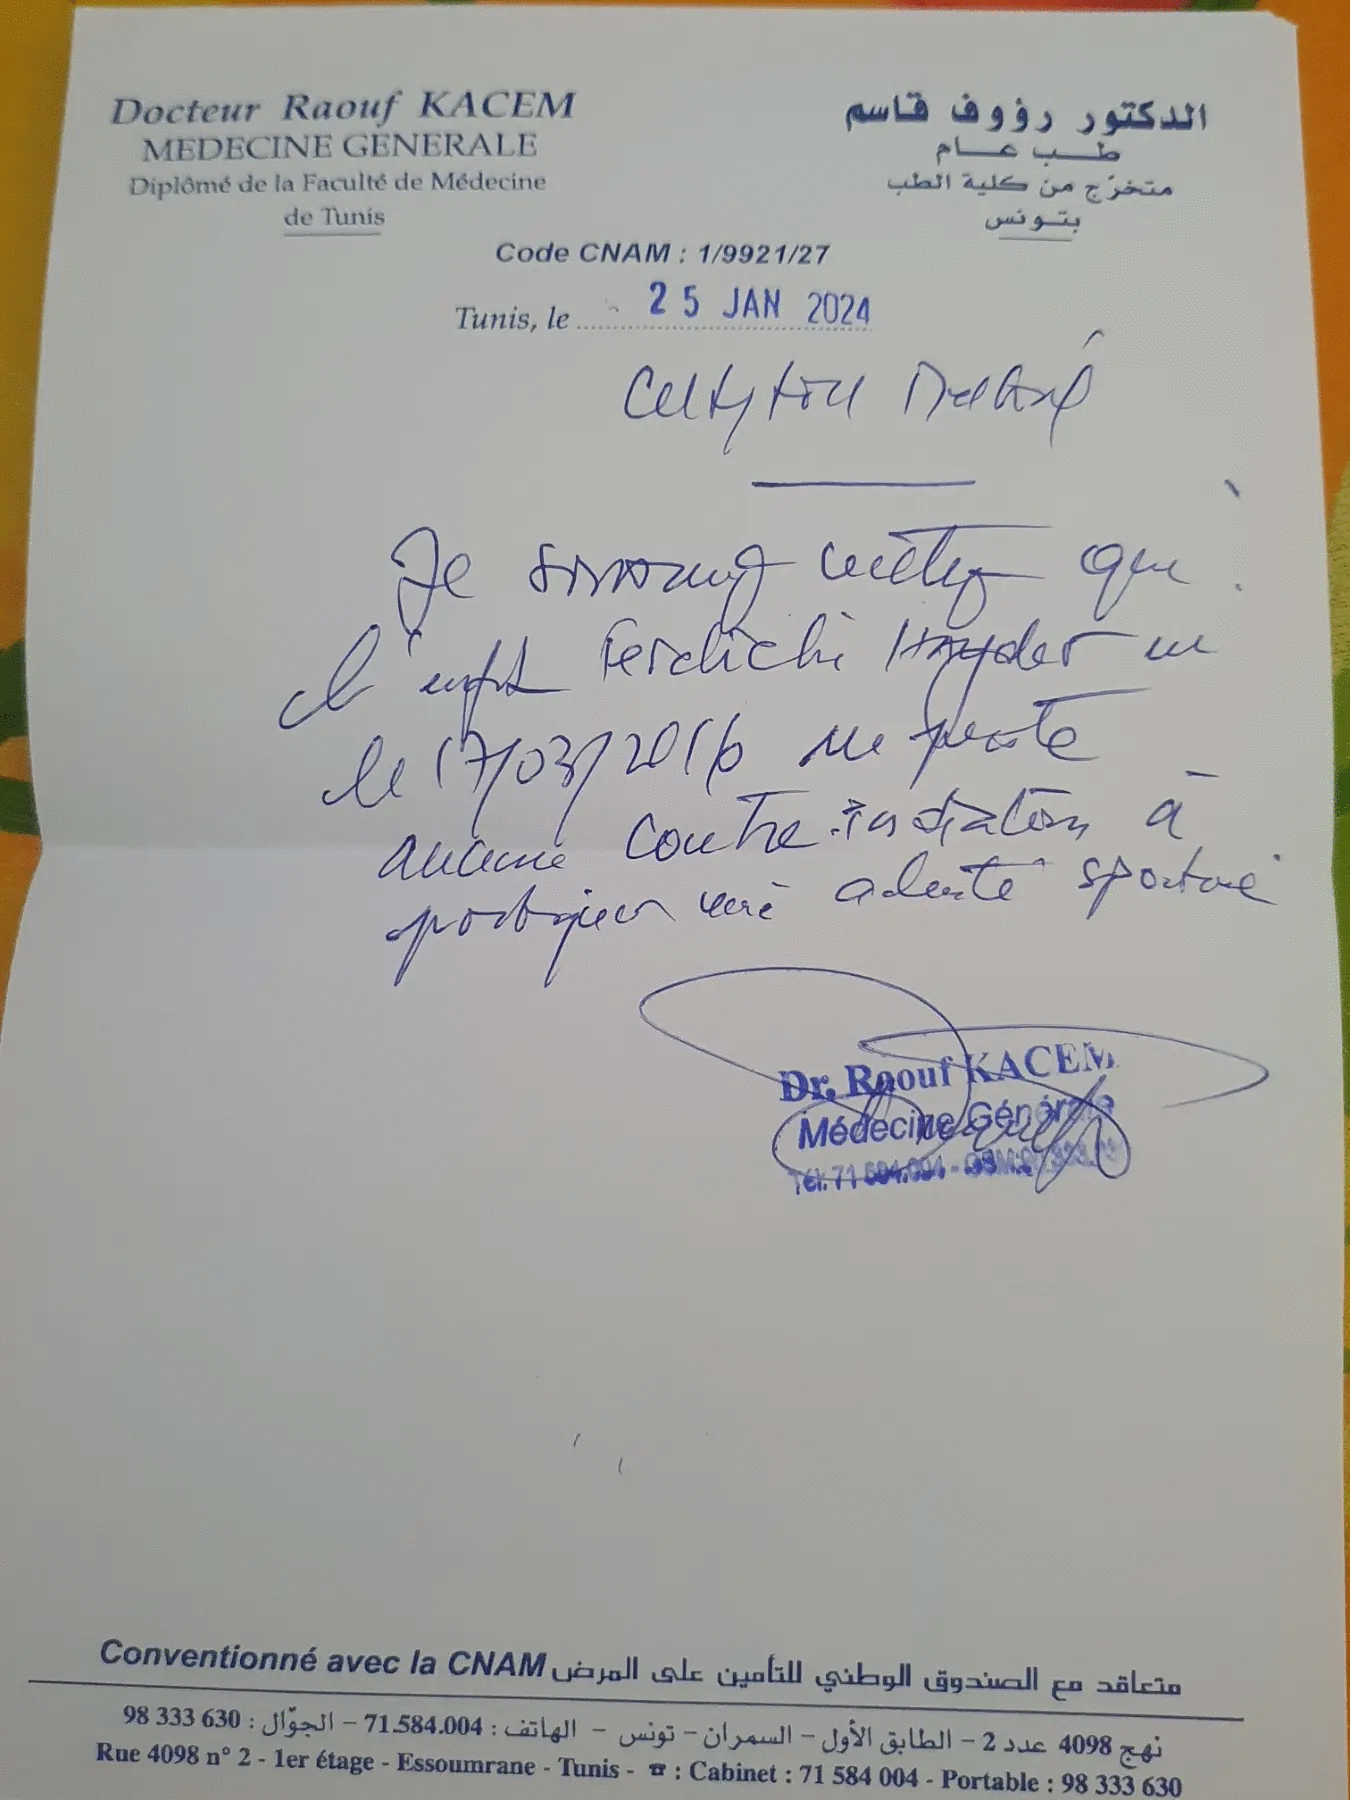 Docteur Raouf KACEM
MEDECINE GENERALE
Diplômé de la Faculté de Médecine
de Tunis
الدكتور رؤوف قاسم
طب عام
متخرّج من كلية الطب
بتونس
Code CNAM : 1/9921/27
Tunis, le 25 JAN 2024
Certificat Médical
Je soussigné certifie que
l'enfant Ferdichi Hayder né
le 17/03/2016 ne présente
aucune contre-indication à
pratiquer une activité sportive
Dr. Raouf KACEM
Médecine Générale
Tél: 71 584.004 - GSM:
Conventionné avec la CNAM متعاقد مع الصندوق الوطني للتأمين على المرض
نهج 4098 عدد 2 – الطابق الأول – السمران – تونس – الهاتف : 71.584.004 – الجوّال : 98 333 630
Rue 4098 n° 2 - 1er étage - Essoumrane - Tunis - ☎ : Cabinet : 71 584 004 - Portable : 98 333 630